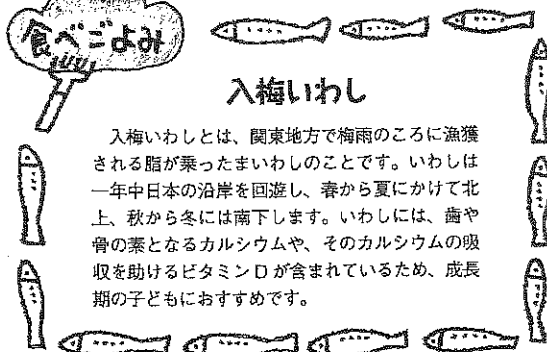 食べごよみ
入梅いわし
入梅いわしとは、関東地方で梅雨のころに漁獲
される脂が乗ったまいわしのことです。いわしは
一年中日本の沿岸を回遊し、春から夏にかけて北
上、秋から冬には南下します。いわしには、歯や
骨の素となるカルシウムや、そのカルシウムの吸
収を助けるビタミンDが含まれているため、成長
期の子どもにおすすめです。